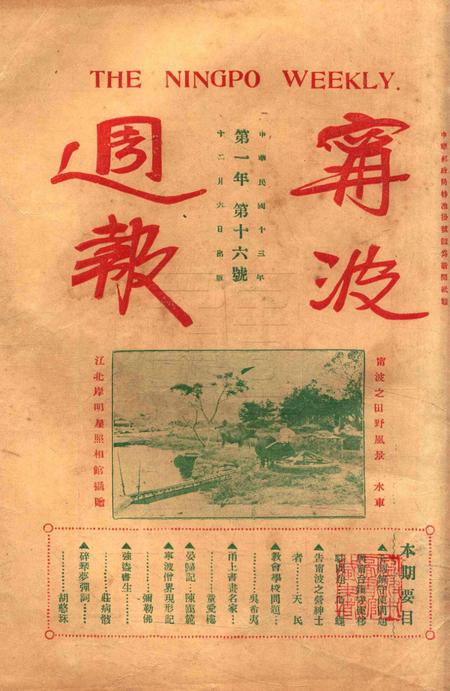 THE NINGPO WEEKLY.
甯波
週報
中華民國十三年
第一年 第十六號
十二月六日出版
中華郵政局特准掛號認爲新聞紙類
甯波之田野風景 水車
江北岸明星照相館攝贈
本期要目
▲告甯波之營紳士
者……天民
▲教會學校問題…
……吳希夷
▲甬上書畫名家…
……童愛樓
▲晏歸記 陳寥龍
▲寧波僧界現形記
……彌勒佛
▲強盜書生…
……莊病骸
▲碎琴夢彈詞…
……胡憨珠